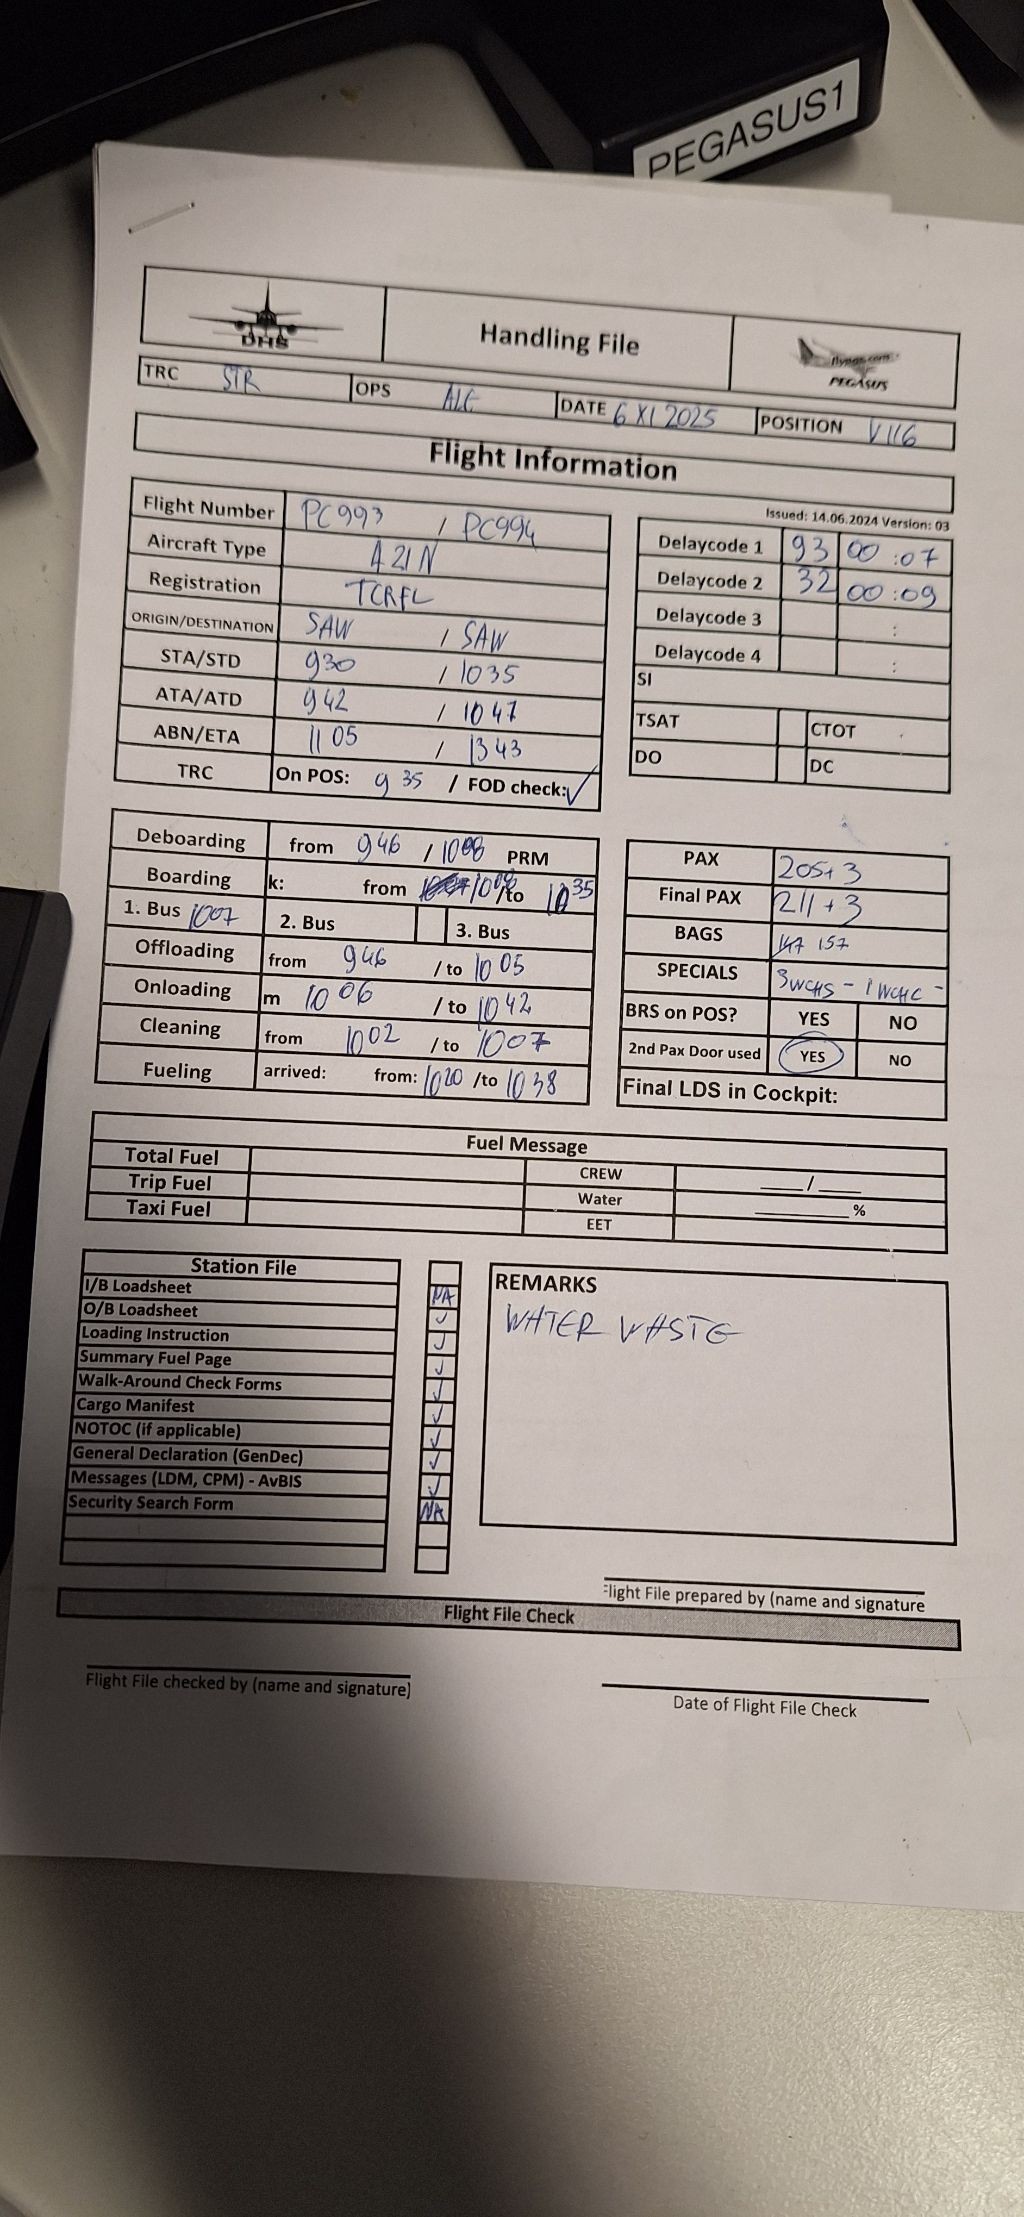 PEGASUS1
DHS
Handling File
flypgs.com
PEGASUS
TRC STR OPS DATE 6 XI 2025 POSITION V116
Flight Information
Issued: 14.06.2024 Version: 03
Flight Number PC993 / PC994
Aircraft Type A21N
Registration TCRFL
ORIGIN/DESTINATION SAW / SAW
STA/STD 930 / 1035
ATA/ATD 942 / 1047
ABN/ETA 1105 / 1343
TRC On POS: 935 / FOD check: ✓
Delaycode 1 93 00:07
Delaycode 2 32 00:09
Delaycode 3 :
Delaycode 4 :
SI
TSAT CTOT
DO DC
Deboarding from 946 / 1008 PRM
Boarding k: from 1008 /to 1035
1. Bus 1007 2. Bus 3. Bus
Offloading from 946 / to 1005
Onloading m 1006 / to 1042
Cleaning from 1002 / to 1007
Fueling arrived: from: 1020 /to 1038
PAX 205+3
Final PAX 211+3
BAGS 147 157
SPECIALS 3WCHS - 1WCHC -
BRS on POS? YES NO
2nd Pax Door used YES NO
Final LDS in Cockpit:
Fuel Message
Total Fuel CREW ___/___
Trip Fuel Water ________%
Taxi Fuel EET
Station File
I/B Loadsheet NA
O/B Loadsheet ✓
Loading Instruction ✓
Summary Fuel Page ✓
Walk-Around Check Forms ✓
Cargo Manifest ✓
NOTOC (if applicable) ✓
General Declaration (GenDec) ✓
Messages (LDM, CPM) - AvBIS ✓
Security Search Form NA
REMARKS
WATER WASTE
Flight File prepared by (name and signature
Flight File Check
Flight File checked by (name and signature)
Date of Flight File Check